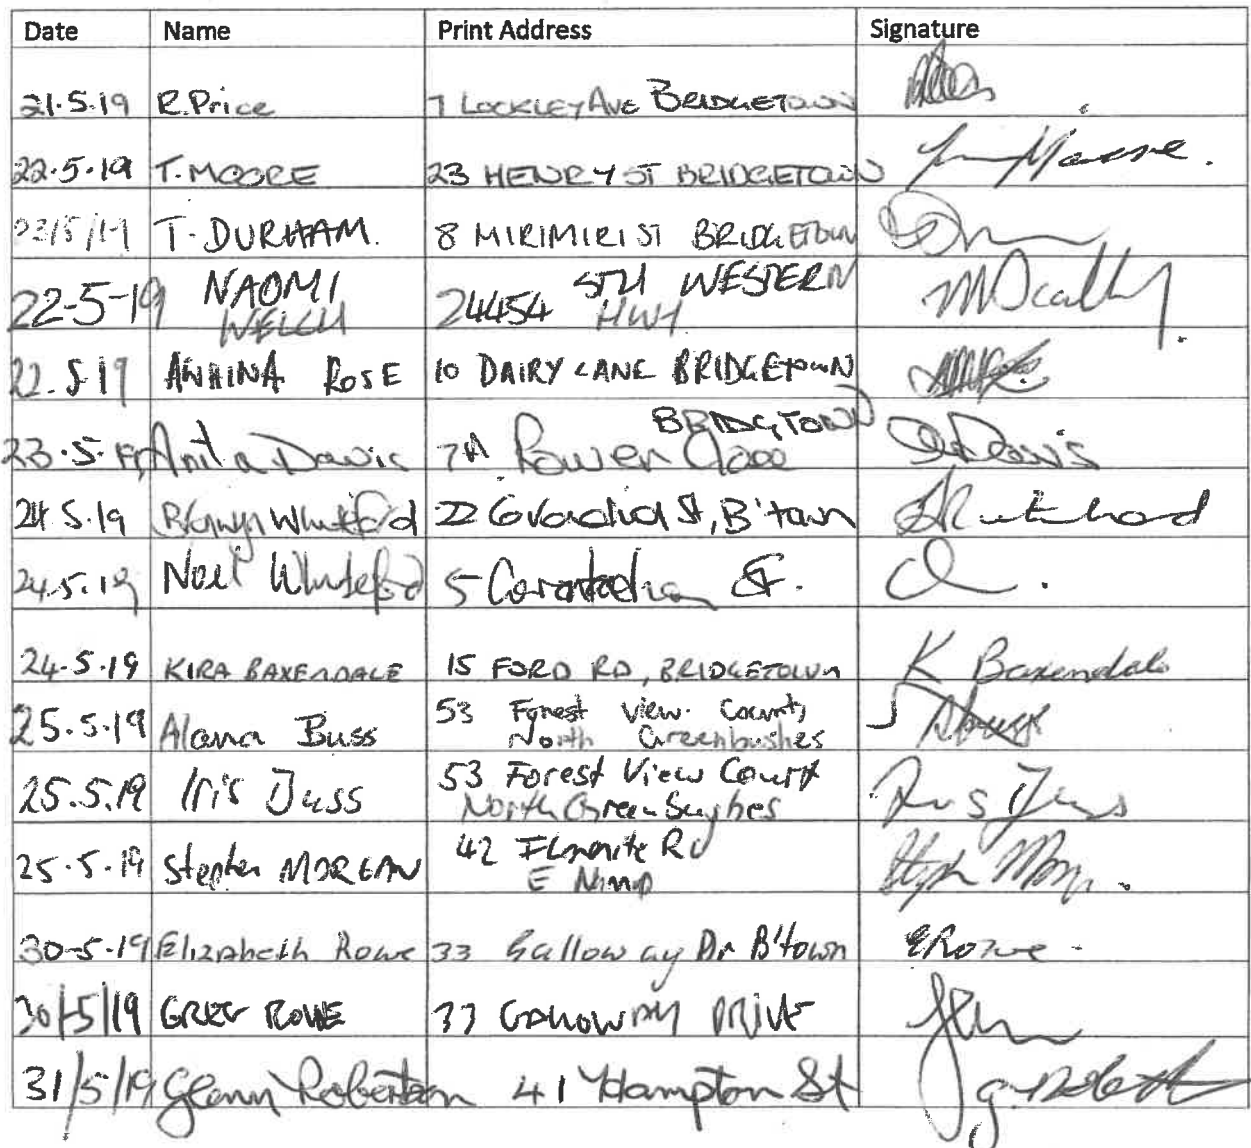 Date Name Print Address Signature
21.5.19 R.Price 7 LOCKLEY AVE BRIDGETOWN
22.5.19 T. MOORE 23 HENRY ST BRIDGETOWN
23/5/19 T. DURHAM. 8 MIRIMIRI ST BRIDGETOWN
22-5-19 NAOMI 24454 STH WESTERN
WELCH HWY
22.5.19 AWHINA ROSE 10 DAIRY LANE BRIDGETOWN
BRIDGTOWN
23.5. Anita Davis 7A Rowen Close
24.5.19 22 St, B'town
24.5.19 Noel Whiteford 5 St.
24.5.19 KIRA BAXENDALE 15 FORD RD, BRIDGETOWN K Baxendale
25.5.19 Alana Buss 53 Forest View Court,
North Greenbushes
25.5.19 Iris Juss 53 Forest View Court
North Greenbushes
25.5.19 Stephen MORGAN 42 Ilmenite Rd
E Nannup
30-5-19 Elizabeth Rowe 33 Galloway Dr B'town ERowe
30/5/19 GREG ROWE 33 GALLOWAY DRIVE
31/5/19 Glenn Robertson 41 Hampton St